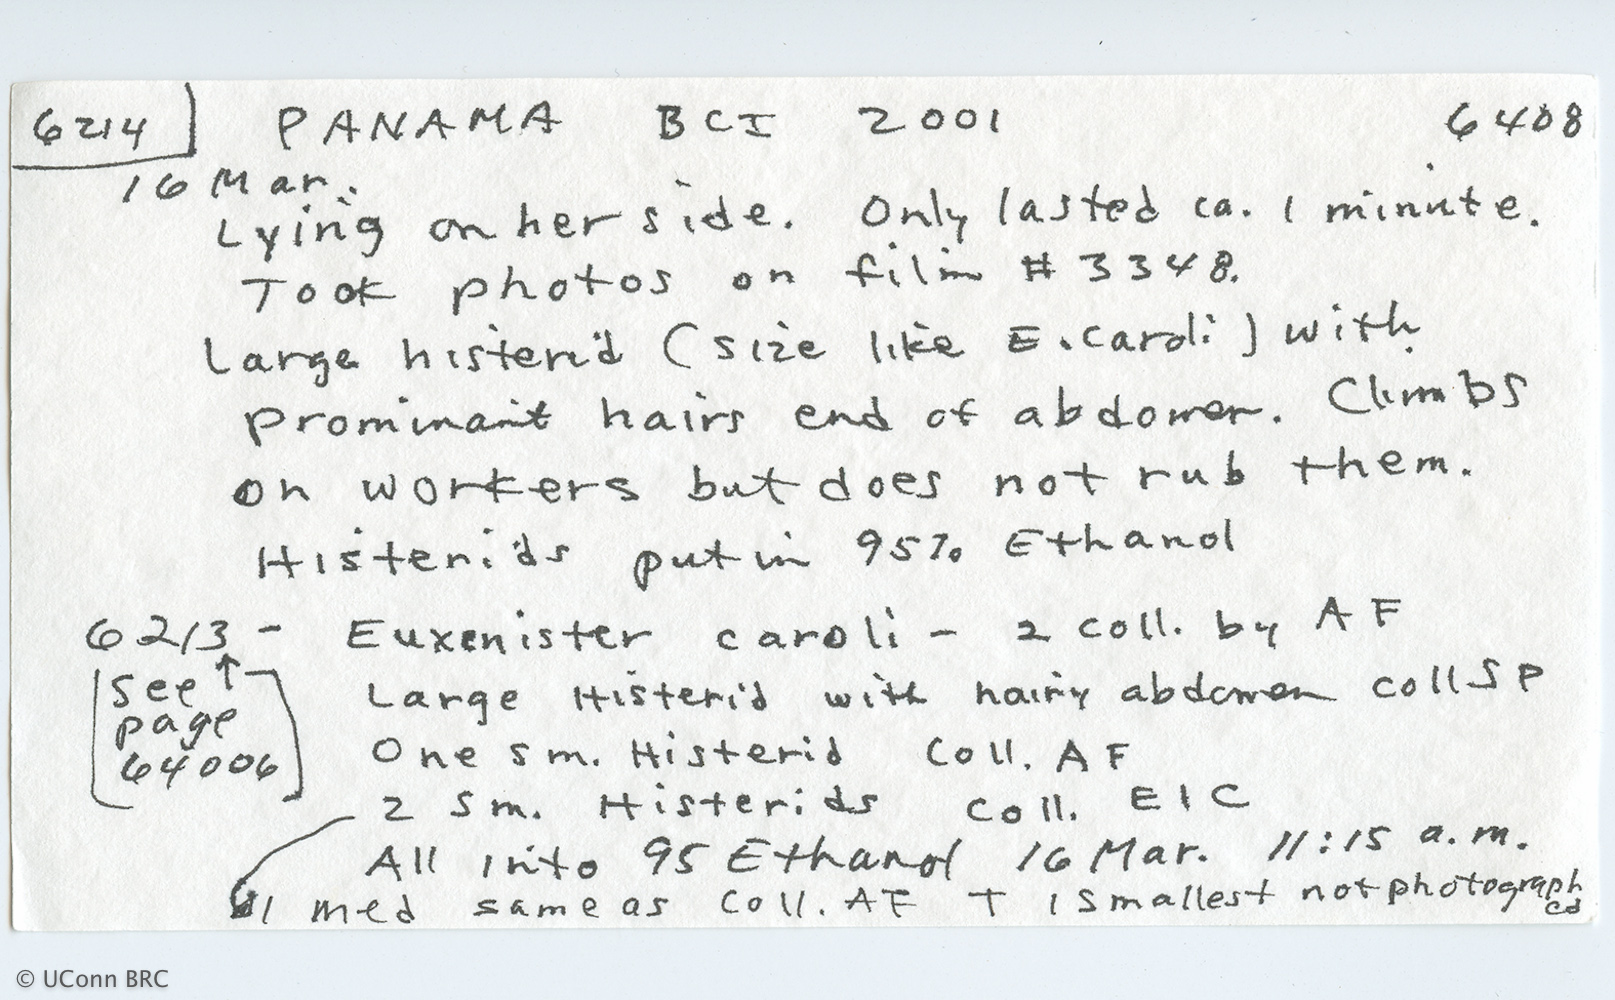 6214 PANAMA BCI 2001 6408
16 Mar.
Lying on her side. Only lasted ca. 1 minute.
Took photos on film # 3348.
Large histerid (size like E. caroli) with
prominant hairs end of abdomen. Climbs
on workers but does not rub them.
Histerids put in 95% Ethanol
6213 - Euxenister caroli - 2 coll. by AF
[see ↑ Large Histerid with hairy abdomen coll SP
page
64006] One sm. Histerid Coll. AF
2 Sm. Histerids Coll. EIC
All into 95 Ethanol 16 Mar. 11:15 a.m.
1 med same as Coll. AF + 1 smallest not photographed
© UConn BRC